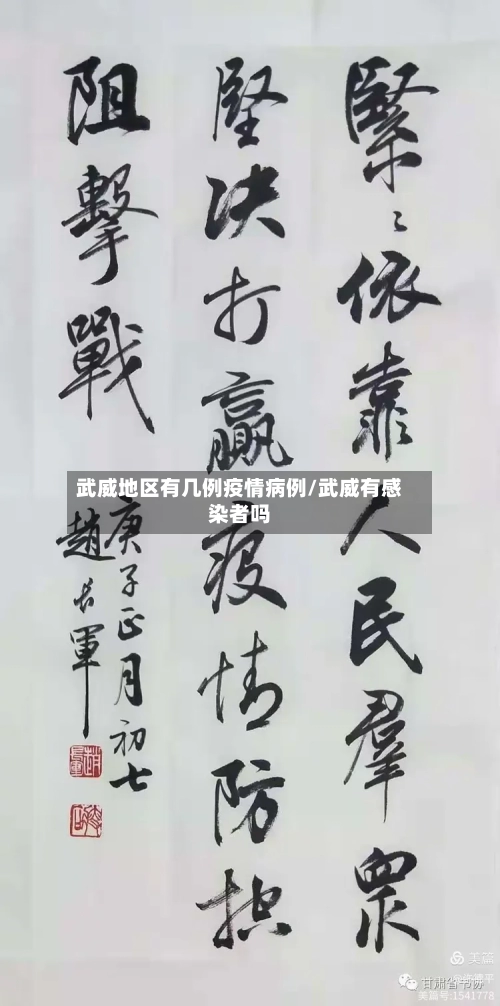 緊〻依靠人民羣衆
堅决打贏疫情防控
阻擊戰
庚子正月初七
趙長軍
武威地区有几例疫情病例/武威有感
染者吗
美篇
甘肃省书协
美篇号:1541778